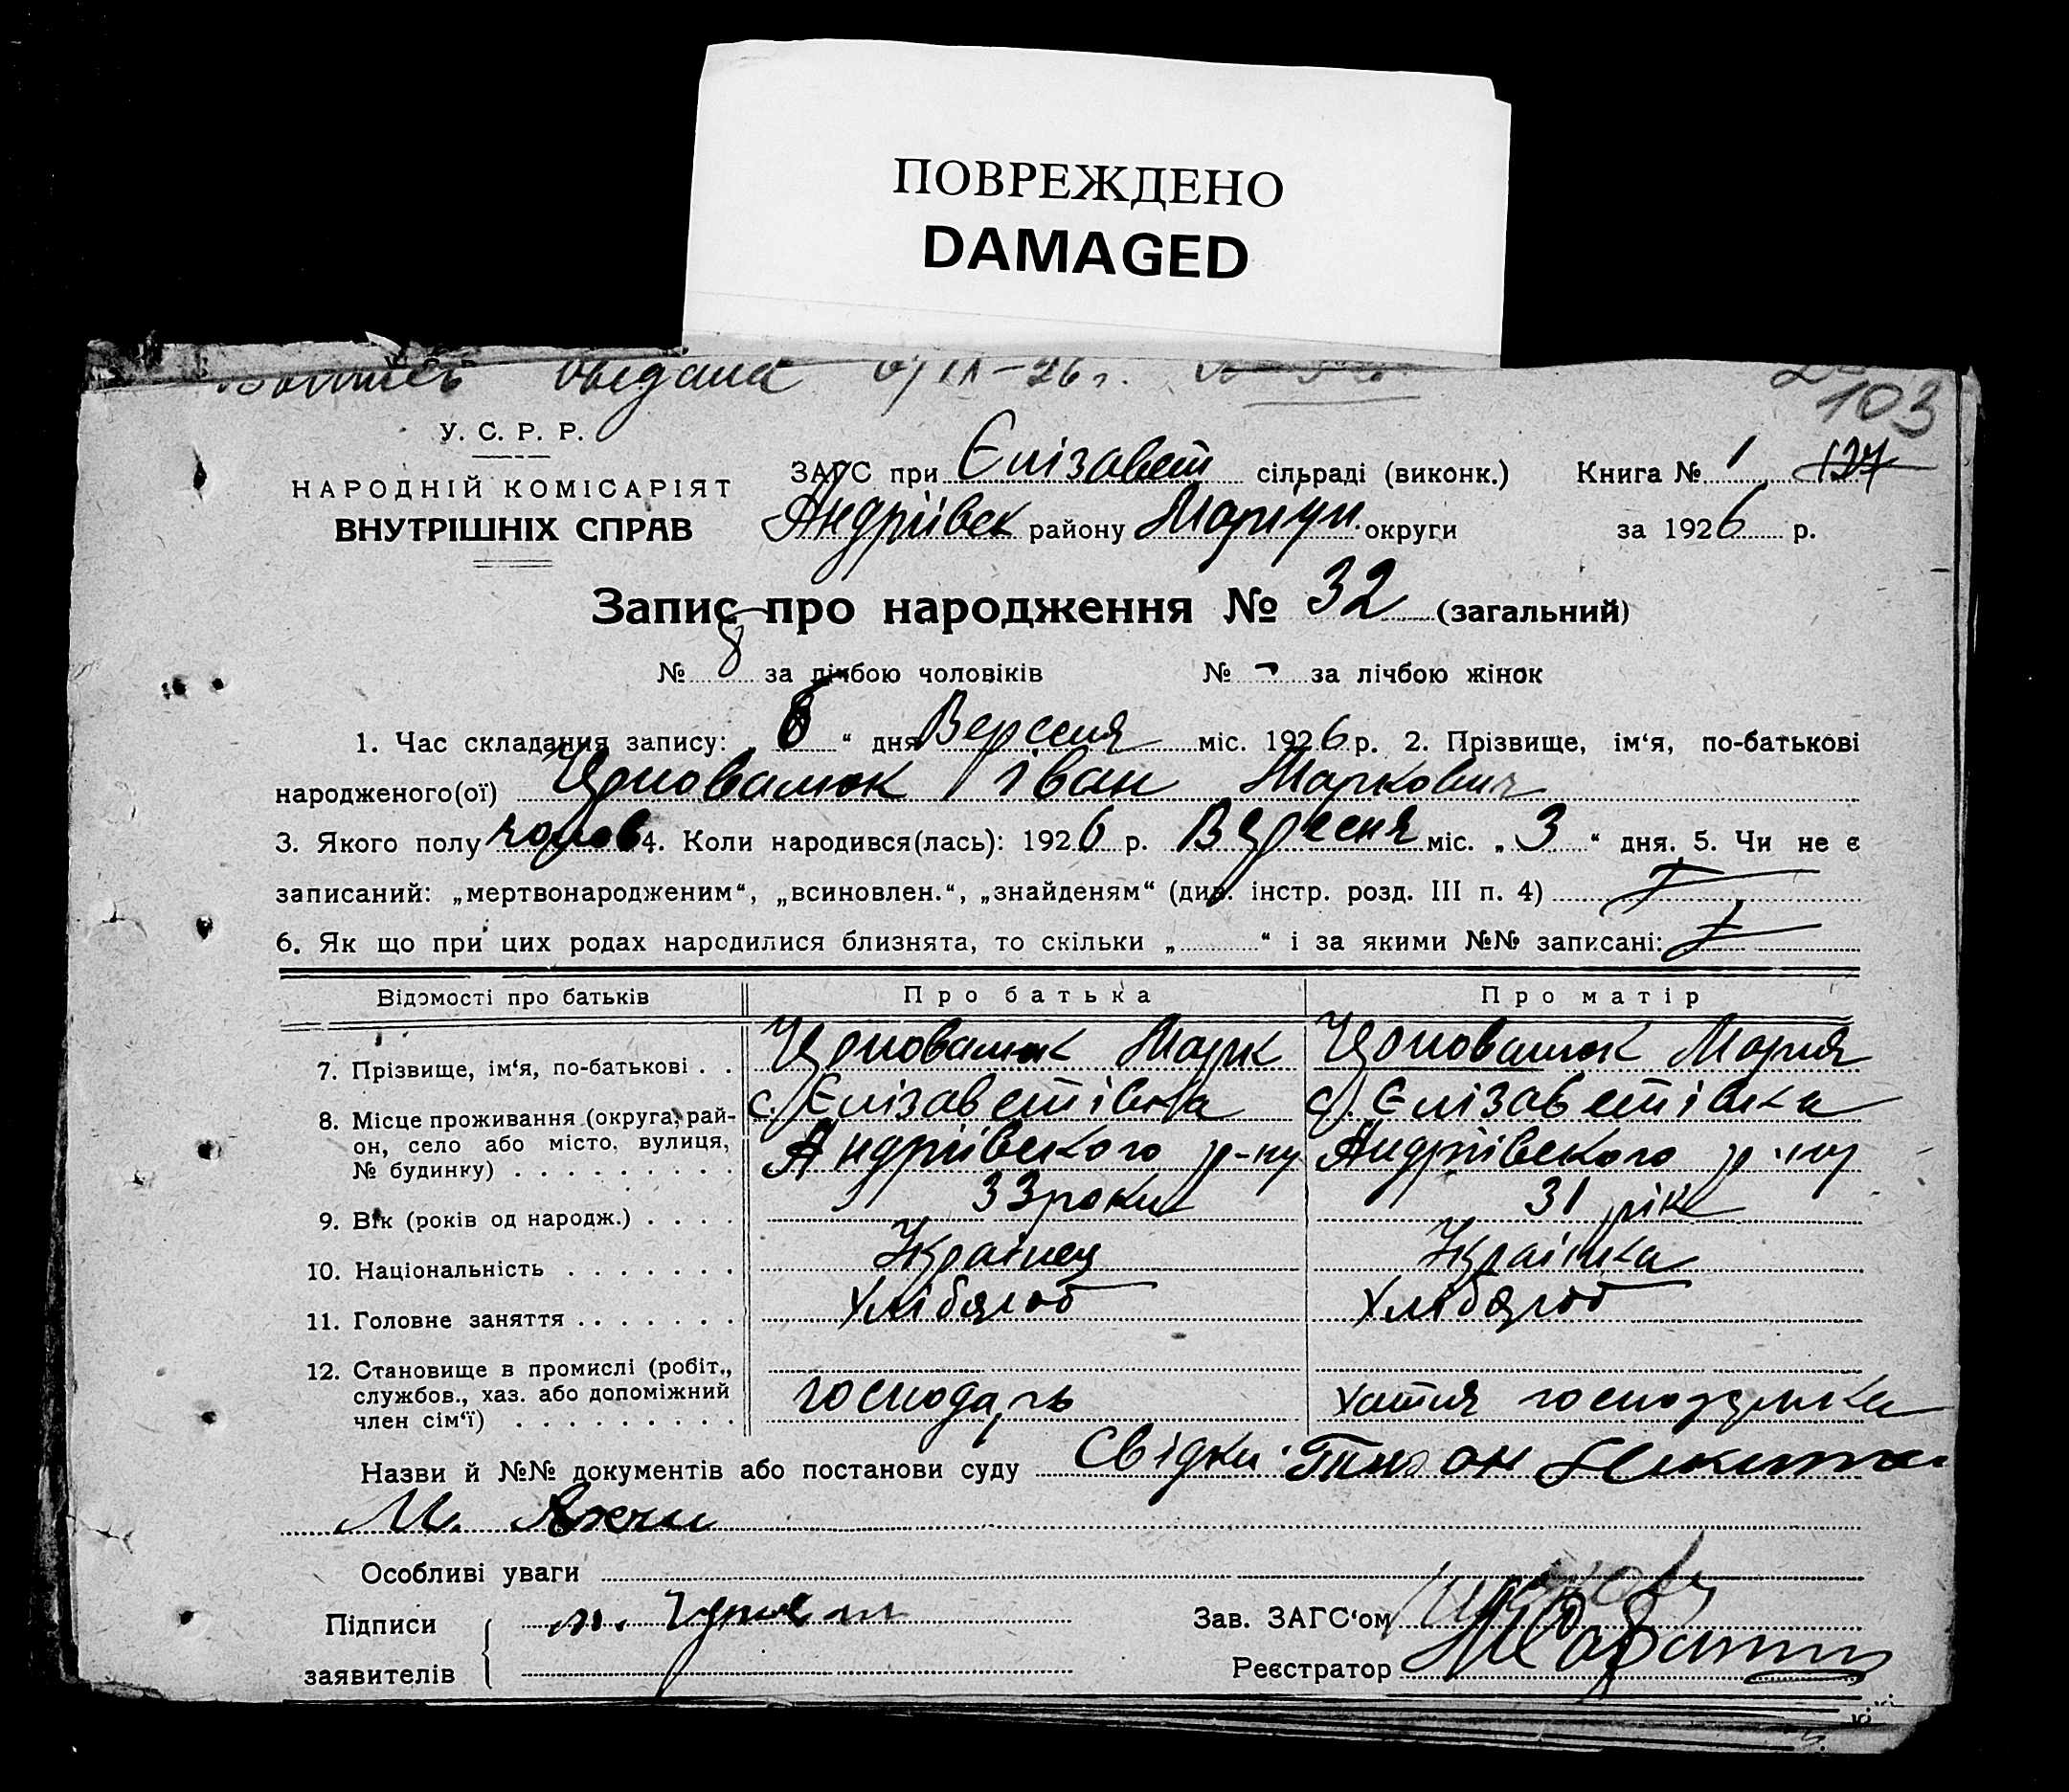 ПОВРЕЖДЕНО
DAMAGED
видана 6/IX-26 г.
103
У. С. Р. Р.
НАРОДНІЙ КОМІСАРІЯТ
ВНУТРІШНІХ СПРАВ
ЗАГС при Єлізавет сільраді (виконк.) Книга № 1 127
Андріївск району Маріуп. округи за 1926 р.
Запис про народження № 32 (загальний)
№ 8 за лічбою чоловіків № - за лічбою жінок
1. Час складання запису: „ 6 “ дня Вересня міс. 1926 р. 2. Прізвище, ім‘я, по-батькові
народженого(ої) Іван Маркович
3. Якого полу чолов 4. Коли народився(лась): 1926 р. Вересня міс. „ 3 “ дня. 5. Чи не є
записаний: „мертвонародженим“, „всиновлен.“, „знайденям“ (див. інстр. розд. III п. 4)
6. Як що при цих родах народилися близнята, то скільки „ “ і за якими №№ записані:
Відомості про батьків Про батька Про матір
7. Прізвище, ім‘я, по-батькові . . Марк Мария
8. Місце проживання (округа, рай- с. Єлізаветівка с. Єлізаветівка
он, село або місто, вулиця, Андріївского р-ну Андріївского р-ну
№ будинку) . . . . . . . . .
9. Вік (років од народж.) . . . . 33 роки 31 рік
10. Національність . . . . . . . Українец Українка
11. Головне заняття . . . . . . . Хлібороб Хлібороб
12. Становище в промислі (робіт.,
службов., хаз. або допоміжний господарь хатня господарка
член сім‘ї) . . . . . . . . .
Назви й №№ документів або постанови суду Свідки
М.
Особливі уваги
Підписи Зав. ЗАГС‘ом
заявителів Реєстратор